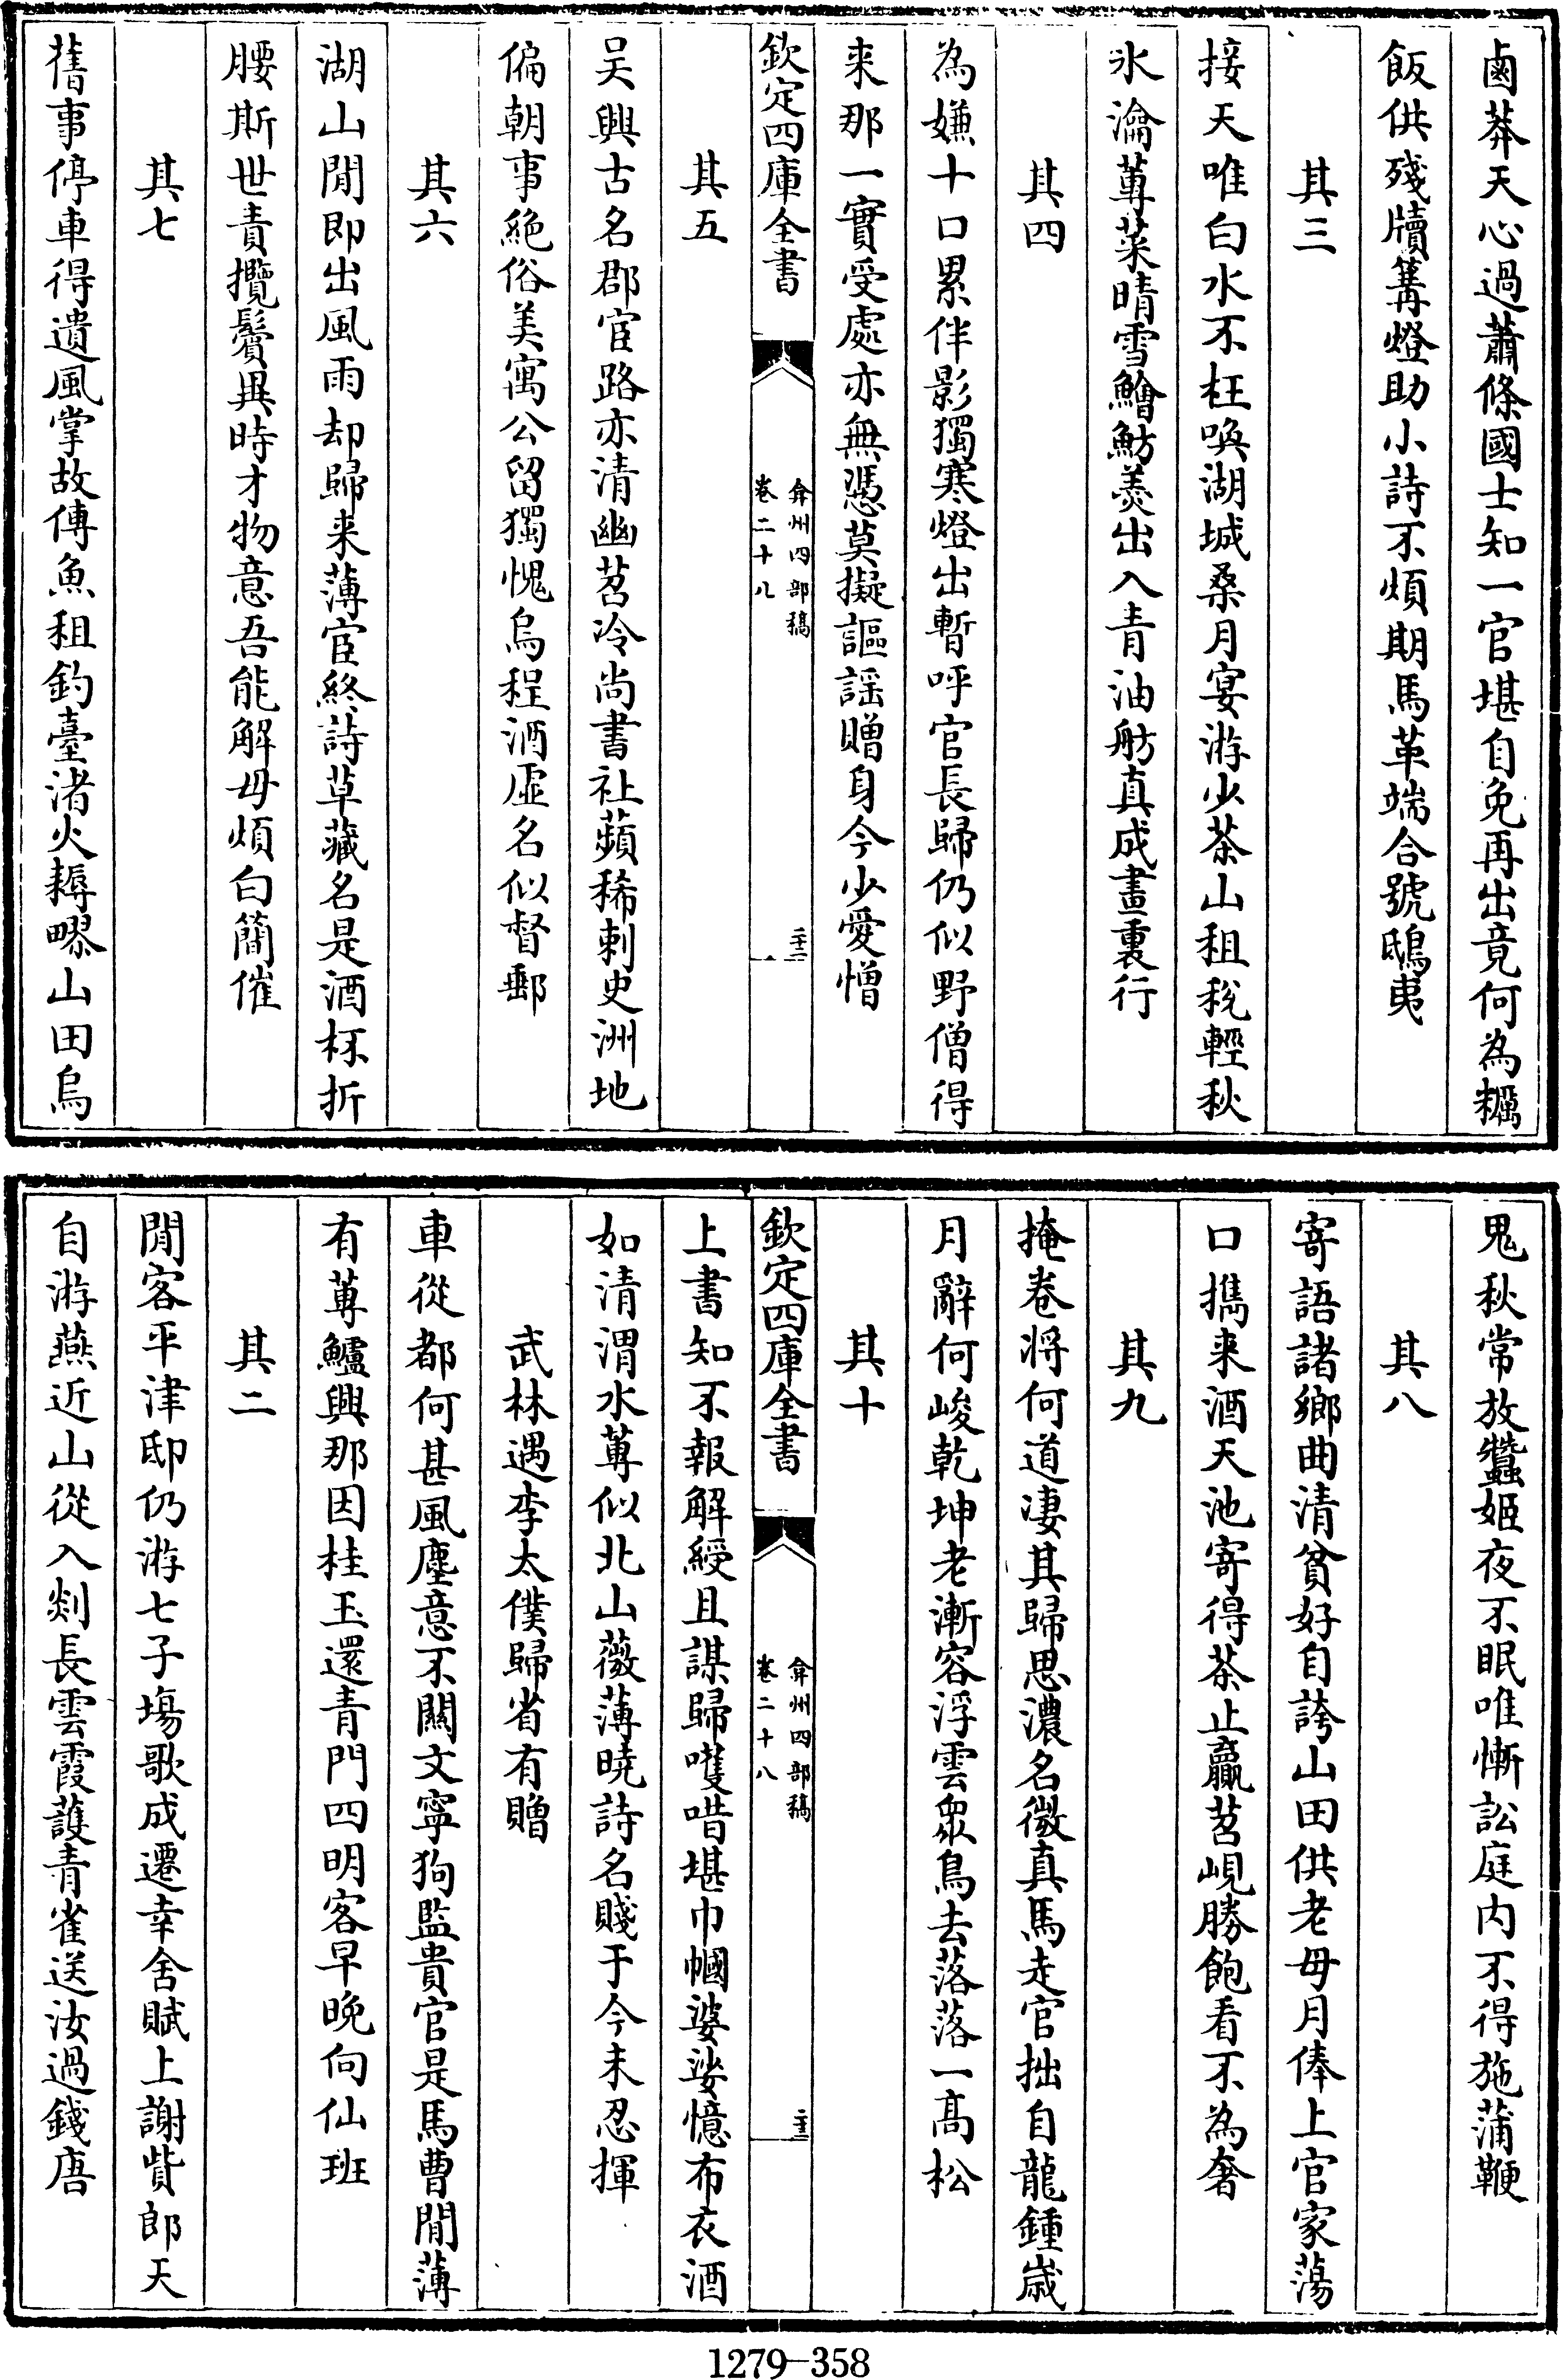 鹵莽天心過蕭條國士知一官堪自免再出竟何為糲
飯供殘牘篝燈助小詩不煩期馬革端合號鴟夷
其三
接天唯白水不枉喚湖城桑月宴游少茶山租稅輕秋
氷瀹蓴菜晴雪鱠魴羮出入青油舫真成畫裏行
其四
為嫌十口累伴影獨寒燈出暫呼官長歸仍似野僧得
来那一實受處亦無憑莫擬謳謡贈身今少愛憎
欽定四庫全書
弇州四部稿
卷二十八
其五
吴興古名郡宦路亦清幽苕冷尚書祉蘋稀刺史洲地
偏朝事絶俗美寓公留獨愧烏程酒虚名似督郵
其六
湖山閒即出風雨却歸来薄宦終詩草藏名是酒杯折
腰斯世責攬鬢異時才物意吾能解毋煩白簡催
其七
舊事停車得遺風掌故傳魚租釣臺渚火耨畬山田烏
鬼秋常放蠶姬夜不眠唯慚訟庭内不得施蒲鞭
其八
寄語諸鄉曲清貧好自誇山田供老母月俸上官家蕩
口擕来酒天池寄得茶止贏苕峴勝飽看不為奢
其九
掩卷将何道凄其歸思濃名微真馬走官拙自龍鍾嵗
月辭何峻乾坤老漸容浮雲衆鳥去落落一髙松
其十
欽定四庫全書
弇州四部稿
卷二十八
上書知不報解綬且謀歸嚄唶堪巾幗婆娑憶布衣酒
如清渭水蓴似北山薇薄曉詩名賤于今未忍揮
武林遇李太僕歸省有贈
車從都何甚風塵意不闗文寧狗監貴官是馬曹閒薄
有蓴鱸興那因桂玉還青門四明客早晚向仙班
其二
閒客平津邸仍游七子塲歌成遷幸舍賦上謝貲郎天
自游燕近山從入剡長雲霞護青雀送汝過錢唐
1279-358